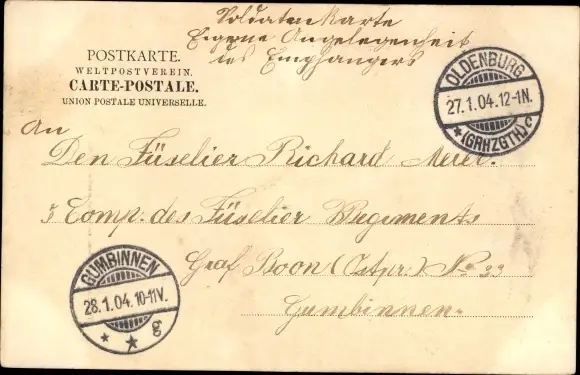 Soldatenkarte
Eigene Angelegenheit
des Empfängers
POSTKARTE.
WELTPOSTVEREIN.
CARTE-POSTALE.
UNION POSTALE UNIVERSELLE.
OLDENBURG
27.1.04.12-1N.
*(GRHZGTH)c
An
Den Füselier Richard
5 Comp. des Füselier Regiments
Graf Roon (Ostpr.) No 33
Gumbinnen
GUMBINNEN
28.1.04.10-11V.
* * g